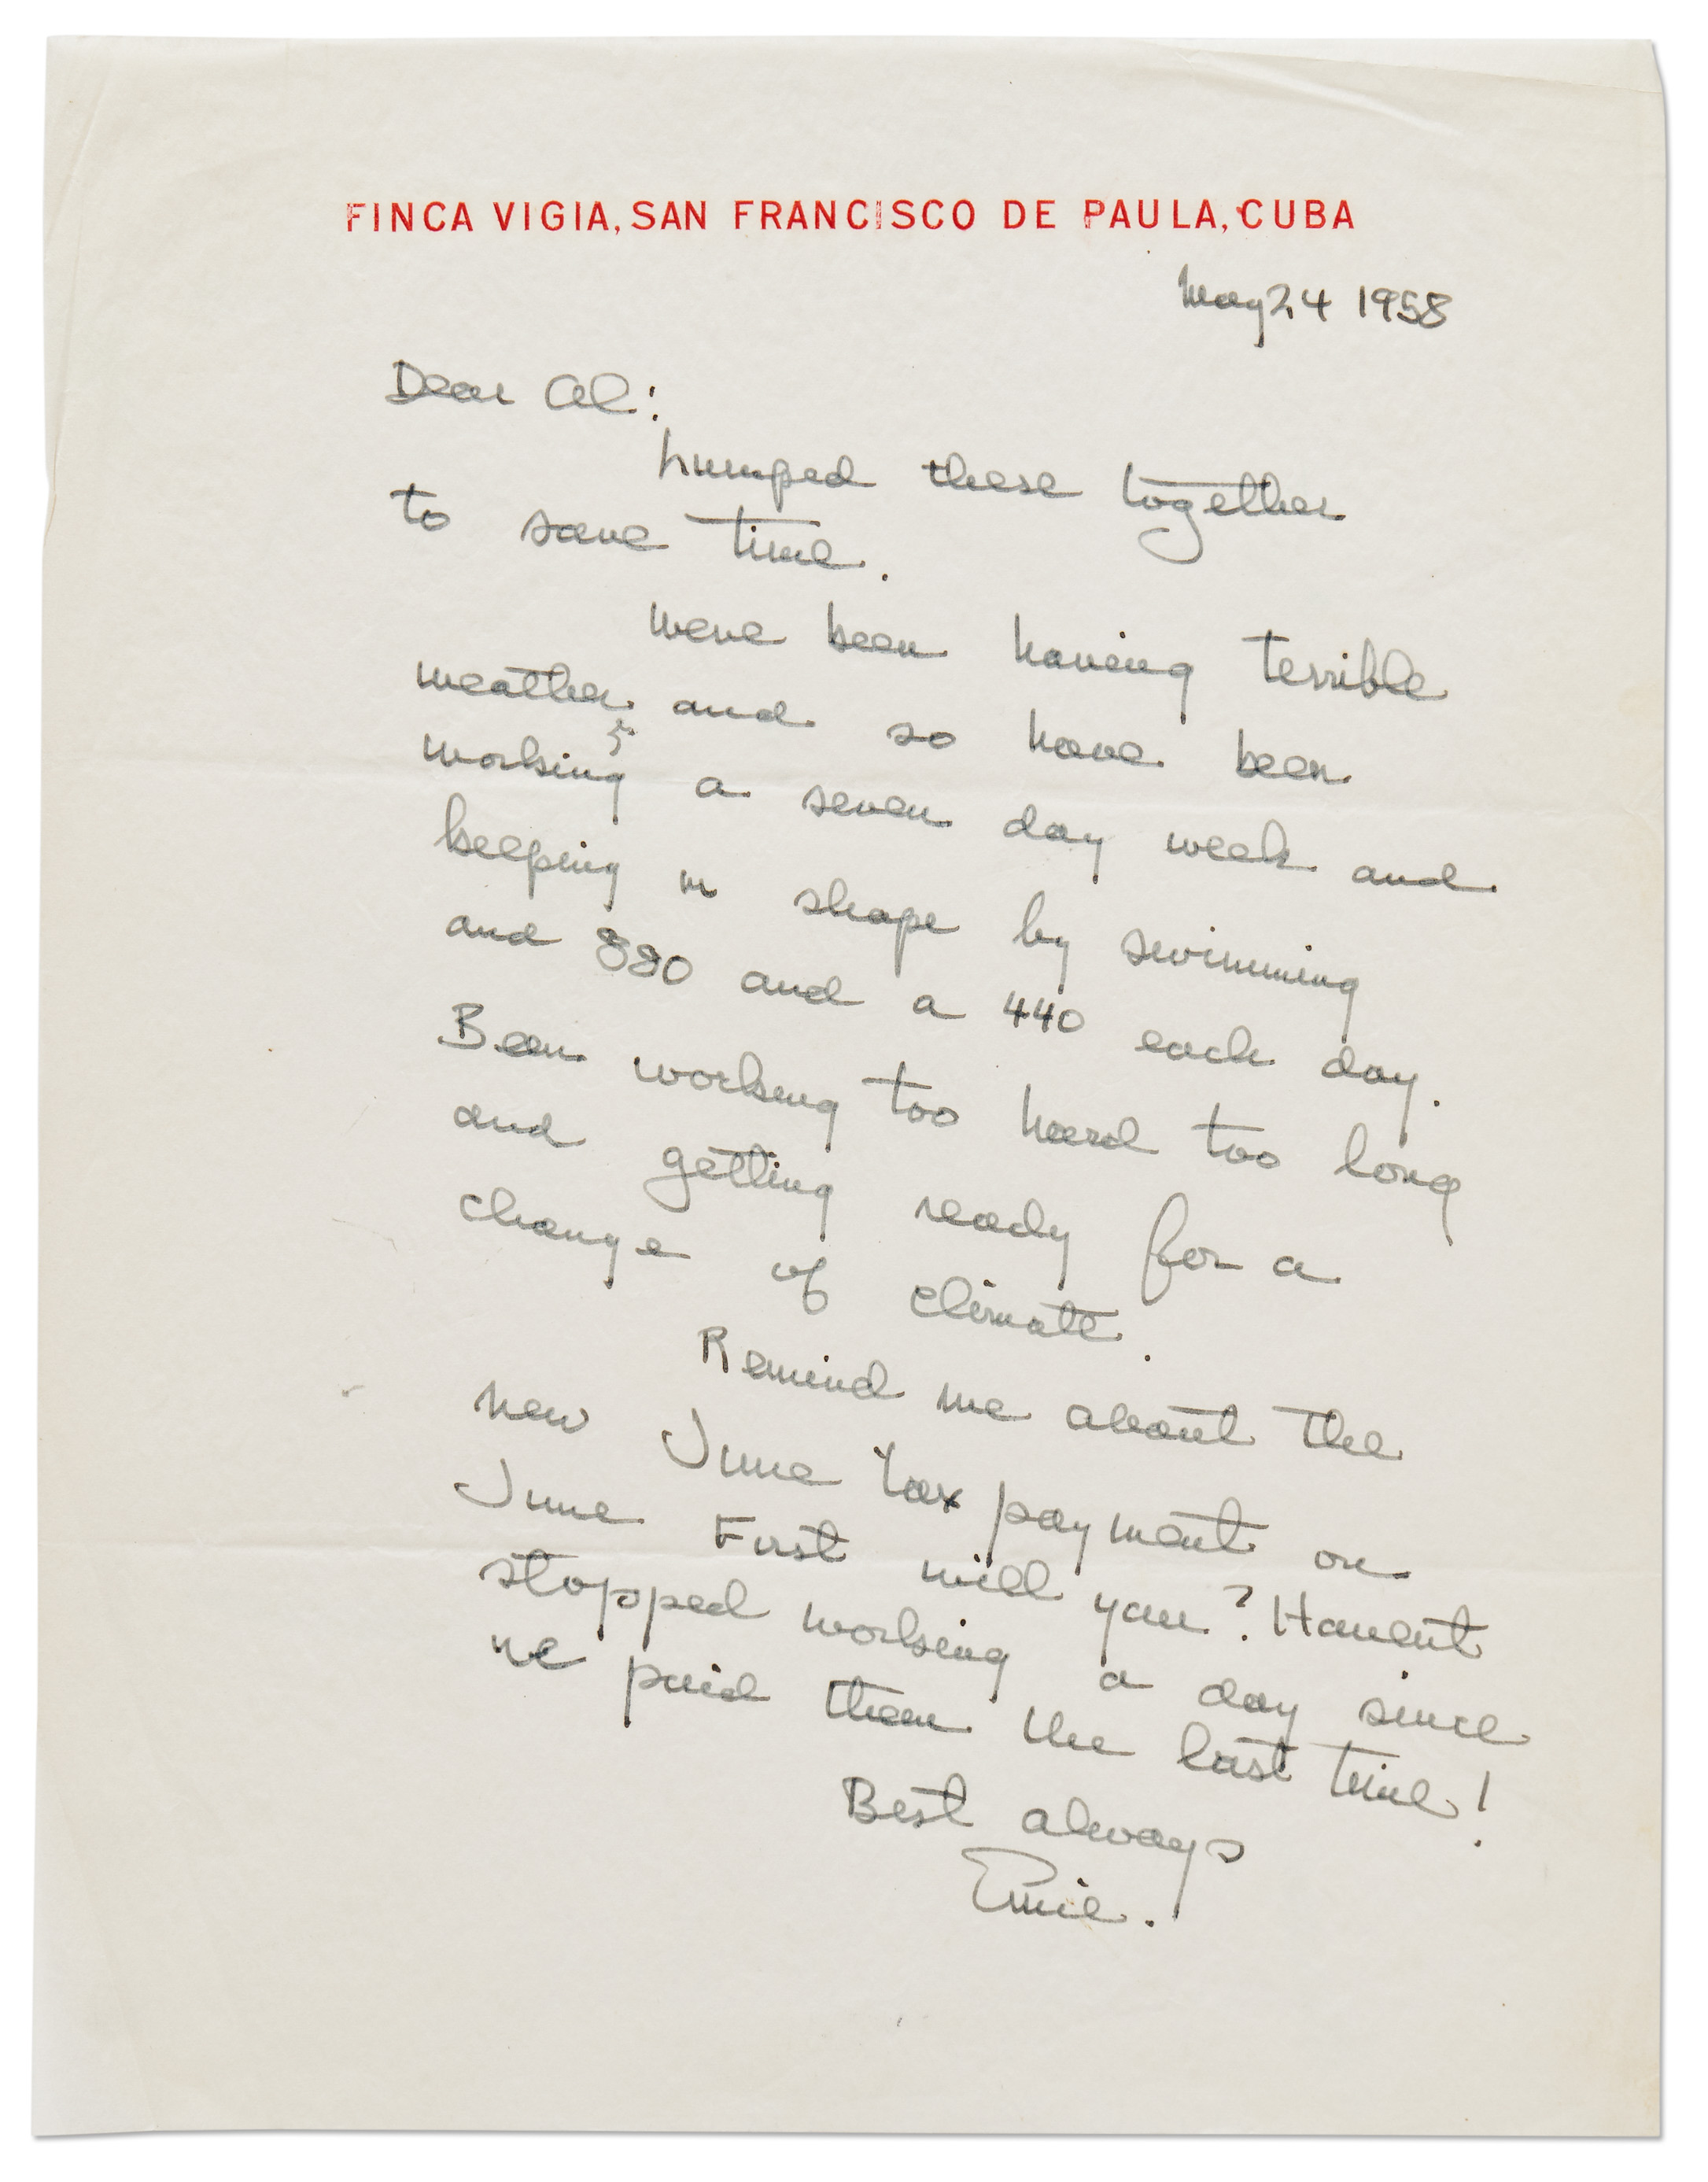 FINCA VIGIA, SAN FRANCISCO DE PAULA, CUBA
May 24 1958
Dear Al:
Lumped these together
to save time.
Weve been having terrible
weather and so have been
working a seven day week and
keeping in shape by swimming
and 880 and a 440 each day.
Been working too hard too long
and getting ready for a
change of climate.
Remind me about the
new June tax payment on
June First will you? Havent
stopped working a day since
we paid them the last time!
Best always
Ernie.